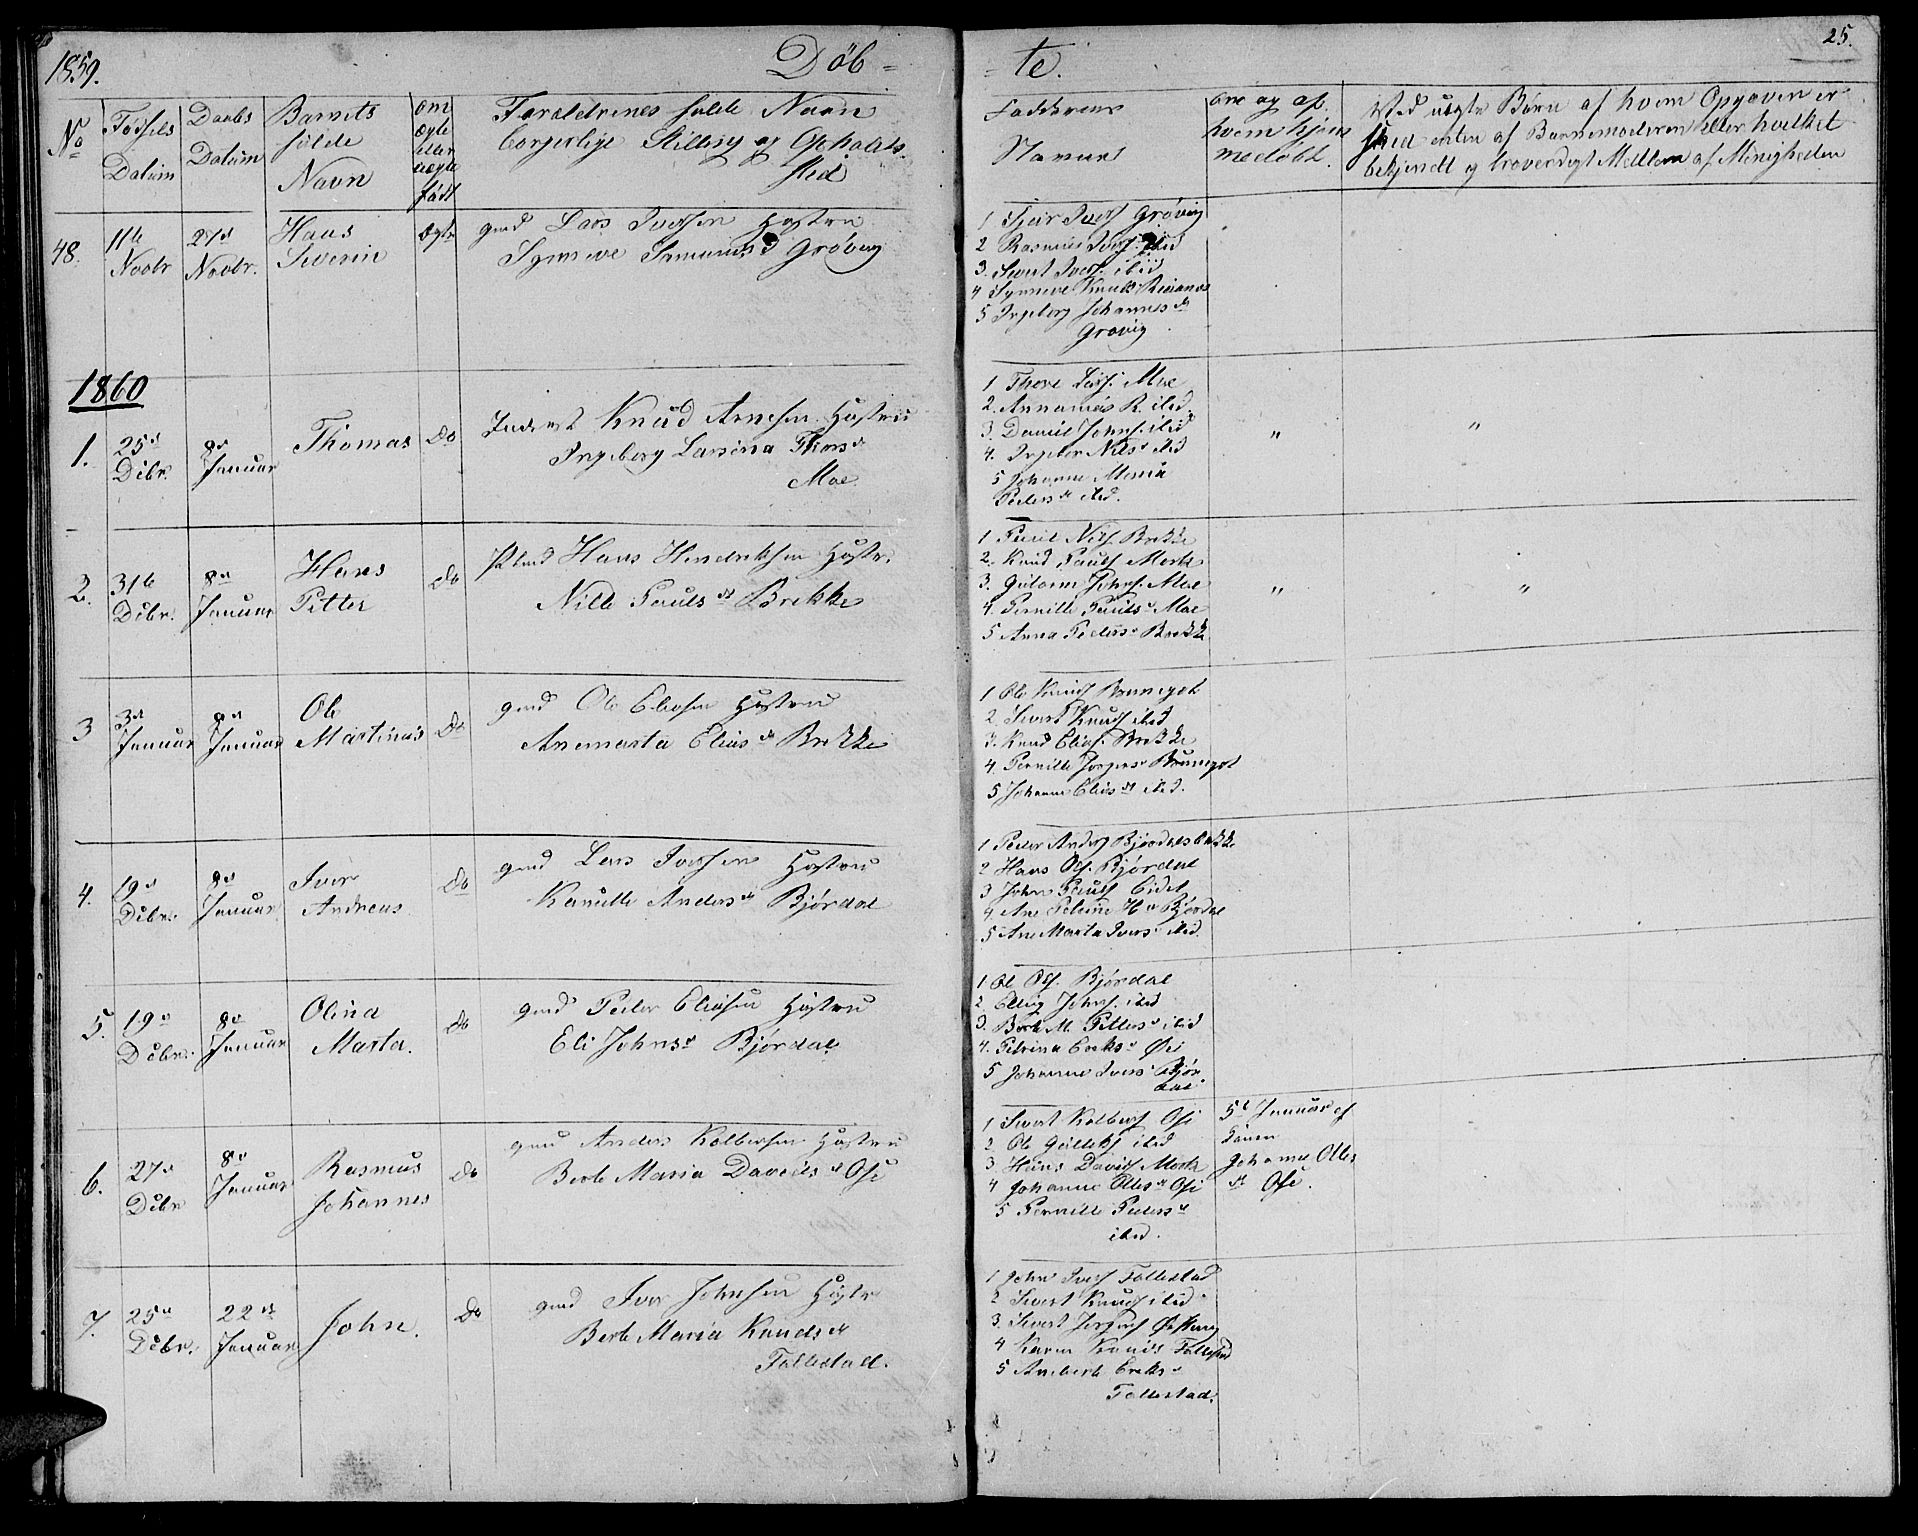 1859.
Døb-
-te.
25.
No
Fødsels
Datum
Daabs
Datum
Barnets
fulde
Navn
om
ægte
eller
uægte
født
Forældrenes fulde Navn
borgerlige Stilling og Opholds-
sted
Faddernes
Navne
om og af
hvem hjem
medøbt.
Ved uægte Børn af hvem Opgaven er
skeed enten af Barnemoderen eller hvilket
bekjendt og troverdigt Medlem af Menigheden
48.
11te
Novbr
27d
Novbr.
Hans
Siverin
ægte
gmd Lars Iversen Hustru
Synneve Grøvig
1 Ivers Grøvig
2 Rasmus Ivers. ibid
3. Sivert Ivers. ibid
4 Synneve Knuds
5 Ingeborg Johannesdr
Grøvig
1860
1.
25d
Dcbr.
8d
Januar
Thomas
Do
Inderst Knud Arnesen Hustru
Ingeborg Larsina Thorsdr
Moe.
1 Thore Moe
2. R. ibid.
3. Daniel Johns. ibid
4. Nilsd ibid
5 Johanne Maria
Pedersdr ibid.
" "
2.
31te
Dcbr.
8d
Januar
Hans
Petter
do
Plmd Hans Hendriksen Hustr.
Nille Paulsdr Brekke
1 Nils. Brekke
2. Knud Pauls Mork
3. Guttorm Johns. Moe
4. Pernille Paulsd Moe
5 Anna Pedersd Brekke
" "
3
3d
Januar
8d
Januar
Ole
Martinus
Do
gmd Ole Eliasen Hustru
Anemarta Eliasdr Brekke
1 Ole Knuds
2. Sivert Knuds ibid
3. Knud Elias. Brekke
4. Pernille Jørgensd
5 Johanne Eliasdr ibid.
4.
19d
Dcbr.
8d
Januar
Iver
Andreas
do
gmd Lars Iversen Hustru
Andersdr Bjørdal
1 Peder Anders
2 Hans Ols. Bjørdal
3 John Pauls Eidet
4. Ane Petrine Hdr Bjørdal
5 Ane Marta Iversd ibid.
5.
19d
Dcbr.
8d
Januar
Olina
Marta.
do
gmd Peder Eliasen Hustru
Eli Johnsdr Bjørdal.
1 Ole Ols. Bjørdal
2 Elling Johns. ibid
3. Berte M. Pettersd ibid
4. Petrina Eriksd Øie
5 Johanne Iversd Bjør
dal
6.
27d
Dcbr
8d
Januar
Rasmus
Johannes
do
gmd Anders Kolbersen Hustru
Berte Maria Davidsdr Ose
1 Sivert Kolbers Ose
2 Ole ibid
3. Hans Davids Mork
4 Johanne Ollesdr Ose
5 Pernille Pedersd
ibid.
5t Januar af
Johanne Olles
dr Ose.
7.
25d
Dcbr.
22de
Januar
John.
Do
gmd Iver Johnsen Hustr.
Berte Maria Knudsdr
Follestad.
1 John Ivers Follestad
2 Sivert Knuds ibid
3. Sivert
4 Karen Follestad
5 Aneberte Eriksd
Follestad.